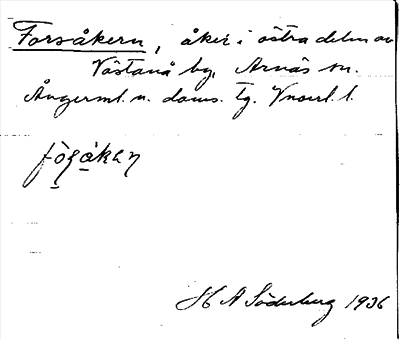 Forsåkern, åker i östra delen av
Västanå by, Arnäs sn.
Ångerml. n. doms. tg. Vnorrl. l.
H A Söderberg 1936